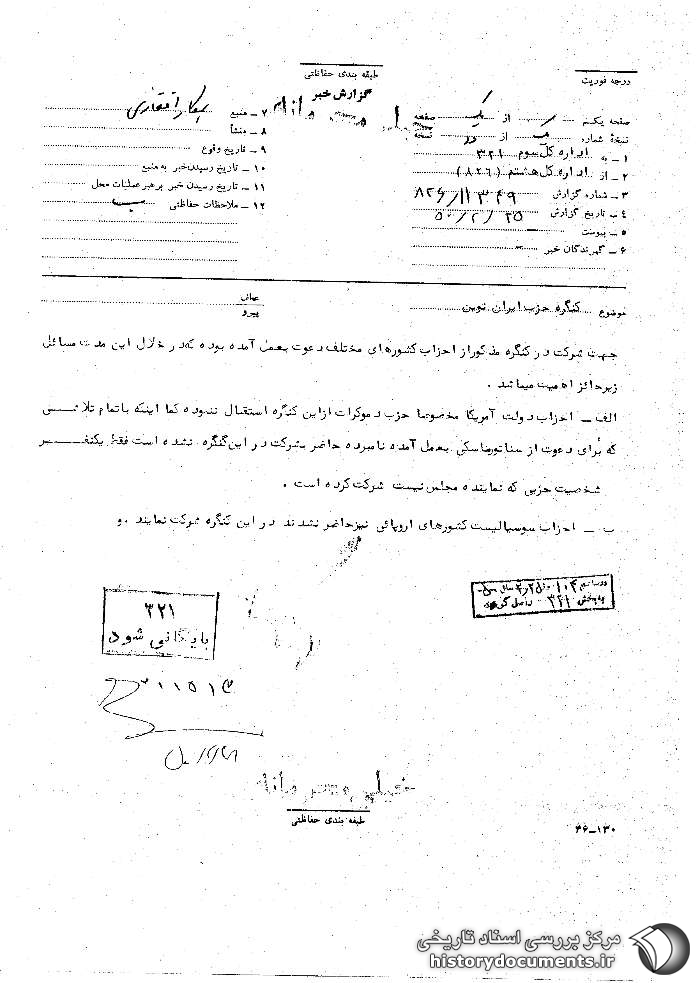 طبقه بندی حفاظتی
درجه فوریت
گزارش خبر
خیلی محرمانه
صفحه یکم از یک صفحه
نسخهٔ شماره از نسخه
۱ – به اداره کل سوم ۳۲۱
۲ – از اداره کل هشتم (۸۲۶)
۳ – شماره گزارش ۸۲۶/۱۱۳۴۹
۴ – تاریخ گزارش ۵۰/۲/۲۵
۵ – پیوست
۶ – گیرندگان خبر
۷ – منبع همکار افتخاری
۸ – منشأ
۹ – تاریخ وقوع
۱۰ – تاریخ رسیدن خبر به منبع
۱۱ – تاریخ رسیدن خبر برهبر عملیات محل
۱۲ – ملاحظات حفاظتی
موضوع کنگره حزب ایران نوین
عطف
پیرو
جهت شرکت در کنگره مذکور از احزاب کشورهای مختلف دعوت بعمل آمده بوده که در خلال این مدت مسائل
زیر حائز اهمیت میباشد .
الف – احزاب دولت آمریکا مخصوصا حزب دموکرات از این کنگره استقبال ننموده کما اینکه با تمام تلاشی
که برای دعوت از سناتور ماسکی بعمل آمده نامبرده حاضر بشرکت در این کنگره نشده است فقط یکنفر
شخصیت حزبی که نماینده مجلس نیست شرکت کرده است .
ب – احزاب سوسیالیست کشورهای اروپائی نیز حاضر نشدند در این کنگره شرکت نمایند .و
۳۲۱
بایگانی شود
خیلی محرمانه
طبقه بندی حفاظتی
۴۶–۱۳۰
مرکز بررسی اسناد تاریخی
historydocuments.ir